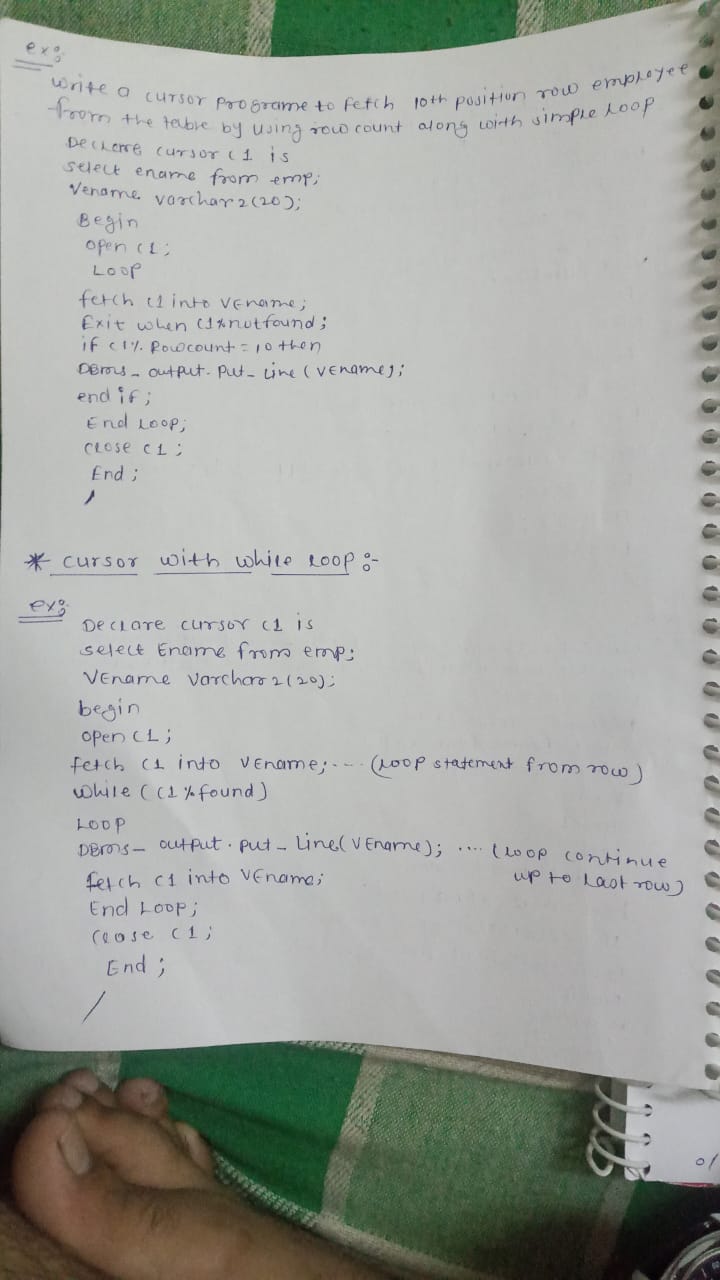 ex:
write a cursor programe to fetch 10th position row employee
from the table by using row count along with simple loop
Declare cursor c1 is
select ename from emp;
Vename varchar2(20);
Begin
open c1;
Loop
fetch c1 into Vename;
Exit when c1%notfound;
if c1%. Rowcount = 10 then
DBms_output.put_line(Vename);
end if;
End Loop;
close c1;
End;
/
* cursor with while loop :-
ex:
Declare cursor c1 is
select Ename from emp;
VEname Varchar2(20);
begin
open c1;
fetch c1 into VEname; --- (Loop statement from row)
while (c1%found)
LOOP
DBms_output.put_Line(VEname); .... (loop continue
up to Last row)
fetch c1 into VEname;
End Loop;
close c1;
End;
/
0/